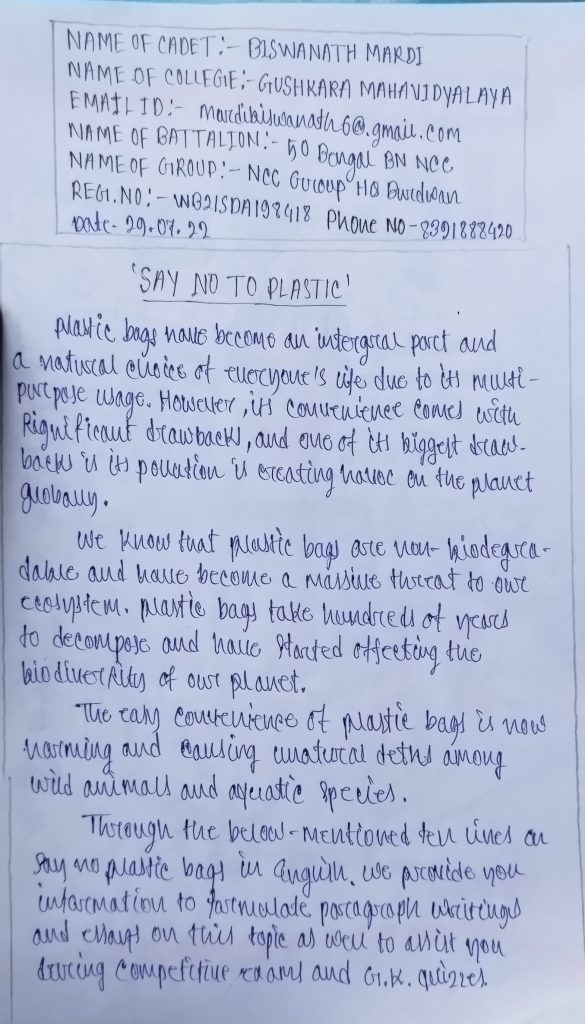 NAME OF CADET:- BISWANATH MARDI
NAME OF COLLEGE:- GUSHKARA MAHAVIDYALAYA
EMAIL ID:- mardibiswanath6@.gmail.com
NAME OF BATTALION:- 50 Bengal BN NCC
NAME OF GROUP:- NCC Group HQ Burdwan
REGI.NO:- WB21SDA198418 Phone NO-8391888420
Date- 29.07.22
'SAY NO TO PLASTIC'
Plastic bags have become an intergral part and
a natural choice of everyone's life due to its multi-
purpose usage. However, its convenience comes with
significant drawbacks, and one of its biggest draw-
backs is its pollution is creating havoc on the planet
globally.
We know that plastic bags are non-biodegra-
dable and have become a massive threat to our
ecosystem. plastic bags take hundreds of years
to decompose and have started affecting the
biodiversity of our planet.
The easy convenience of plastic bags is now
harming and causing unatural deths among
wild animals and aquatic species.
Through the below-mentioned ten lines on
say no plastic bags in English. we provide you
information to formulate paragraph writings
and essays on this topic as well to assist you
during competitive exams and G.K. quizzes.